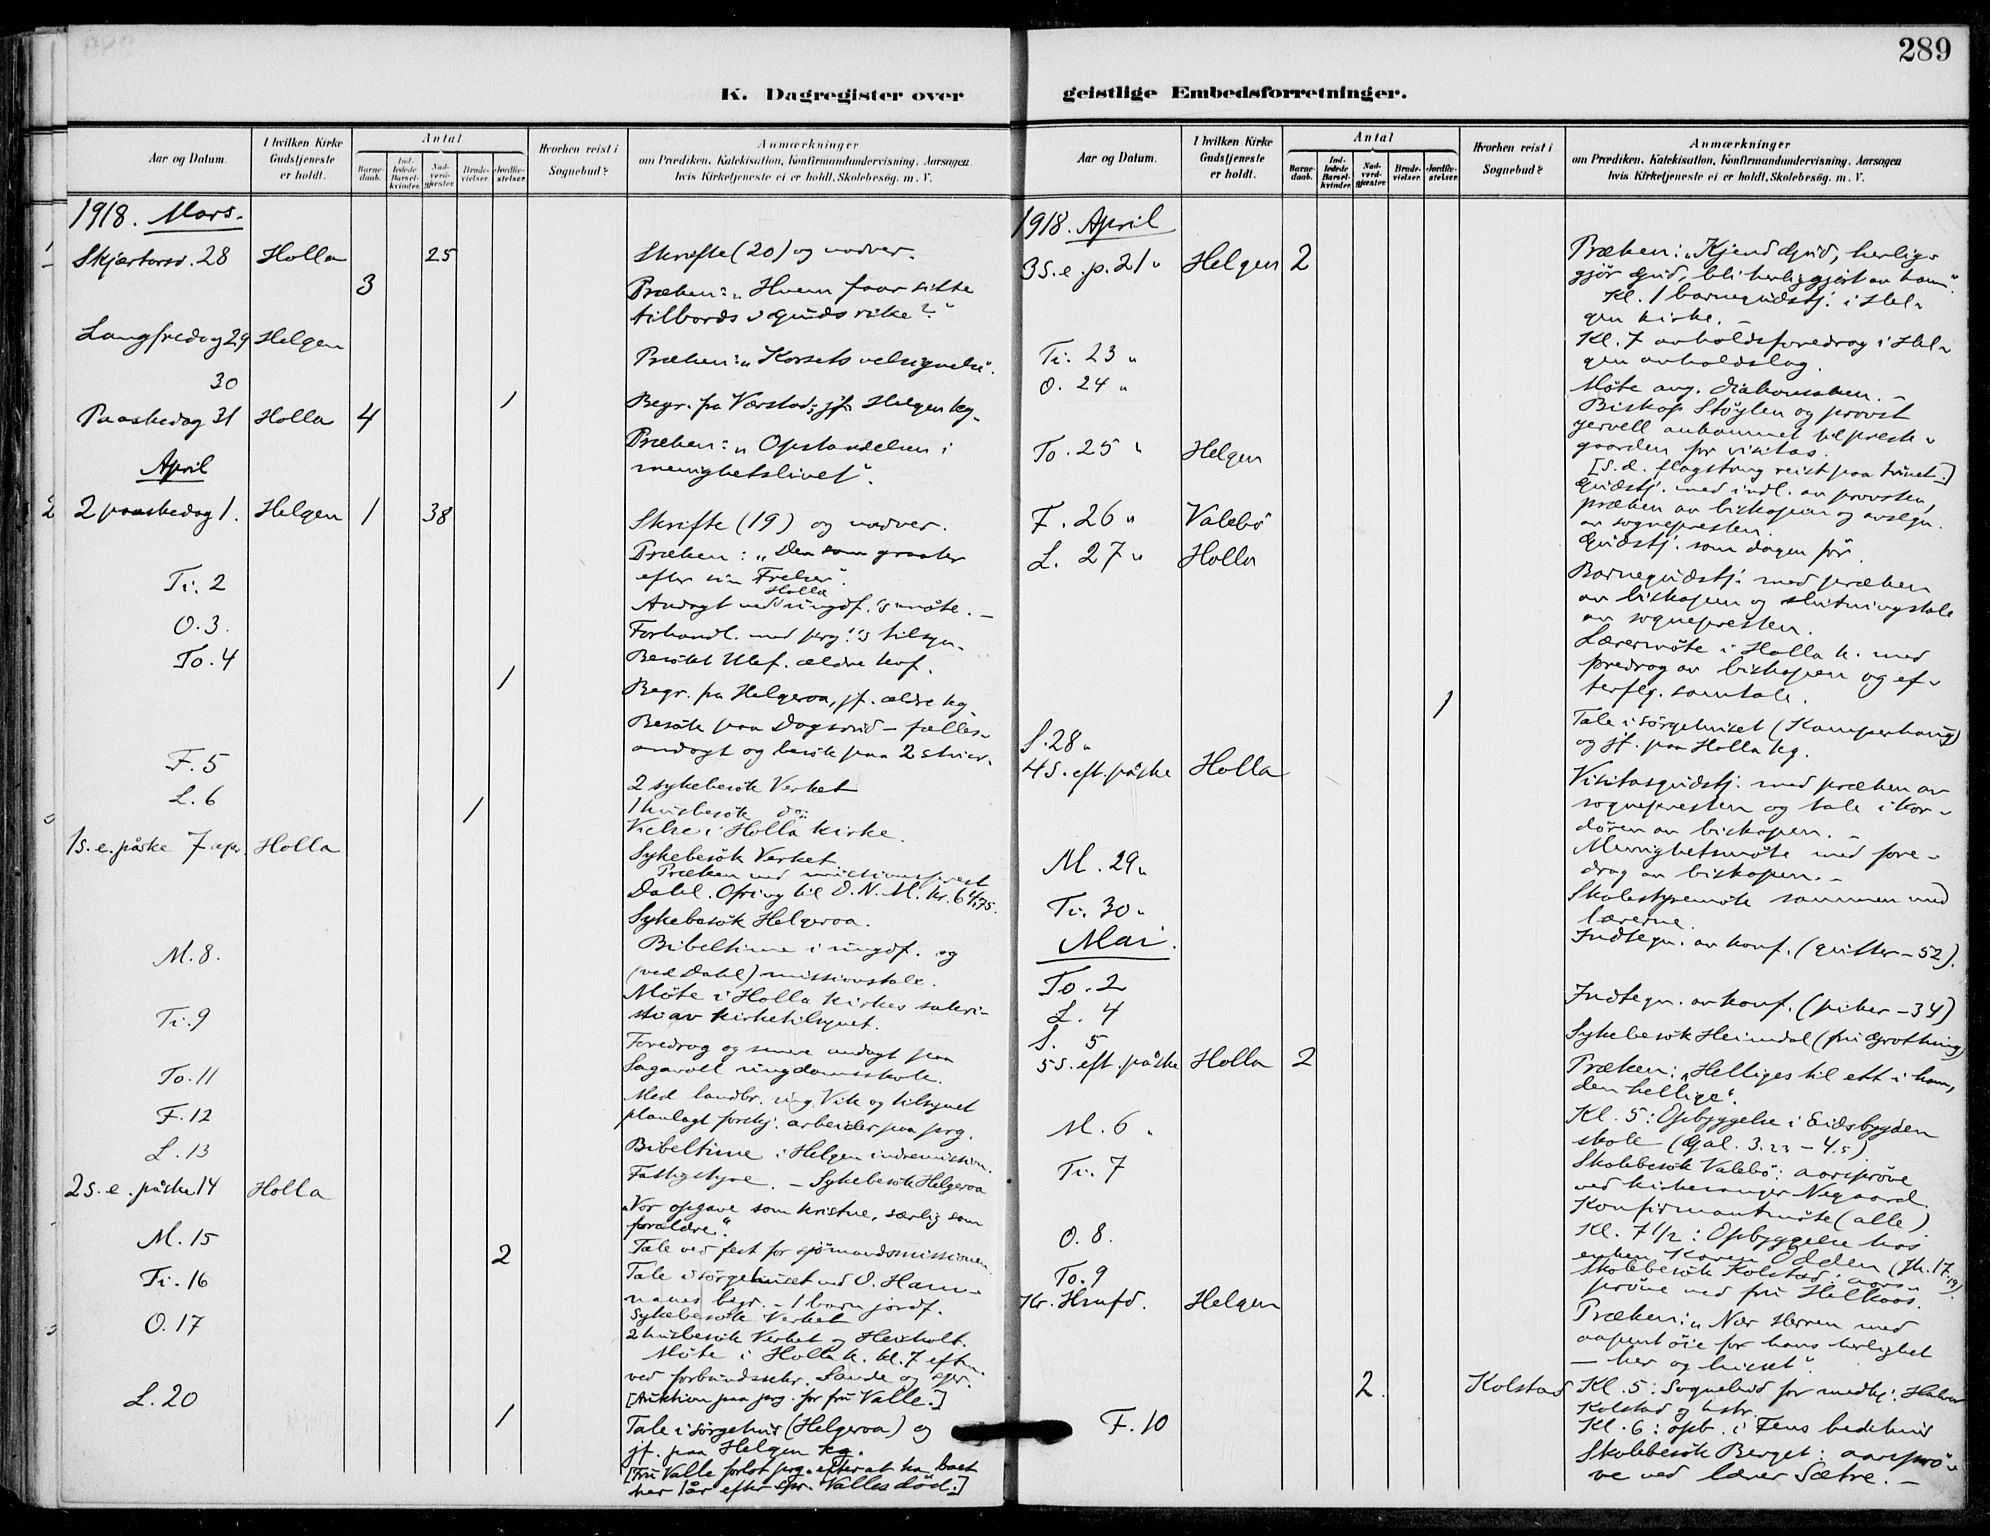 289
K. Dagregister over
geistlige Embedsforretninger.
Aar og Datum.
I hvilken Kirke
Gudstjeneste
er holdt.
Antal
Barne-
daab.
Ind-
ledede
Barsel-
kvinder.
Nad-
verd-
gjæster.
Brude-
vielser.
Jordfæ-
stelser.
Hvorhen reist i
Sognebud?
Anmærkninger
om Prædiken, Katekisation, Konfirmandundervisning, Aarsagen
hvis Kirketjeneste ei er holdt, Skolebesøg. m. V.
1918. Mars.
Skjærtorsd. 28 Holla 25 Skrifte (20) og nadver.
3 Præken: "Hvem faar sitte
tilbords i Guds rike?"
Langfredag 29 Helgen
Præken: "Korsets velsignelse".
30 1 Begr. fra Værstad; jf. Helgen kg.
Paaskedag 31 Holla 4
Præken: "Opstandelsen i
menighetslivet".
April
2 paaskedag 1. Helgen 1 38 Skrifte (19) og nadver.
Præken: "Den som graater
efter sin Frelser".
Ti. 2 Andagt ved Holla ungdf.'s møte. -
O. 3. Forhandl. med prg.'s tilsyn.
To. 4 Besøkt Ulef. ældre konf.
1 Begr. fra Helgeroa, jf. ældre kg.
Besøk paa Dagsrud - fælles-
andagt og besøk paa 2 stuer.
F. 5 2 sykebesøk Verket
L. 6 1 husbesøk do:
1 Vielse i Holla kirke.
1 s. e. påske 7 apr. Holla
Sykebesøk Verket
Præken ved missionsprest
Dahl. Ofring til D. N. M. kr. 64,75.
Sykebesøk Helgeroa.
M. 8. Bibeltime i ungdf. og
(ved Dahl) missionstale.
Ti. 9 Møte i Holla kirkes sakri-
sti av kirketilsynet.
Foredrag og senere andagt paa
To. 11 Sagavoll ungdomsskole.
F. 12 Med landbr. ing. Vik og tilsynet
planlagt forskj. arbeider paa prg.
L. 13 Bibeltime i Helgen indremission.
2 s. e. påske 14 Holla Fattigstyre. - Sykebesøk Helgeroa
"Vor opgave som kristne, særlig som
forældre".
M. 15 Tale ved fest for sjømandsmissionen.
Ti. 16 2 Tale i sørgehuset ved O. Ham-
nanes begr. - 1 barn jordf.
O. 17 Sykebesøk Verket
2 husbesøk Verket og Heisholt.
Møte i Holla k. kl. 7 eftm.
ved forbundssekr. Sande og spr.
L. 20 [Auktion paa prg. for fru Valle.]
1 Tale i sørgehus (Helgeroa) og
jf. paa Helgen kg.
[Fru Valle forlot prg. efter at ha boet
her 1 år efter spr. Valles død.]
Aar og Datum.
I hvilken Kirke
Gudstjeneste
er holdt.
Antal
Barne-
daab.
Ind-
ledede
Barsel-
kvinder.
Nad-
verd-
gjæster.
Brude-
vielser.
Jordfæ-
stelser.
Hvorhen reist i
Sognebud?
Anmærkninger
om Prædiken, Katekisation, Konfirmandundervisning, Aarsagen
hvis Kirketjeneste ei er holdt, Skolebesøg. m. V.
1918. April
3 s. e. p. 21 " Helgen 2 Præken: "Kjend Gud, herlig-
gjør Gud, bli herliggjort av ham".
Kl. 1 barnegudstj. i Hel-
gen kirke. -
Kl. 7 avholdsforedrag i Hel-
gen avholdslag.
Ti. 23 " Møte ang. diakonsaken. -
O. 24 " Biskop Støylen og provst
Gervell ankommet til preste-
gaarden for visitas.
[S. d. flagstang reist paa tunet.]
To. 25 " Helgen Gudstj. med indl. av provsten,
præken av biskopen og avslgn.
av sognepresten.
F. 26 " Valebø Gudstj. som dagen før
L. 27 " Holla Barnegudstj. med præken
av biskopen og slutningstale
av sognepresten.
Lærermøte i Holla k. med
foredrag av biskopen og ef-
terflg. samtale.
1 Tale i sørgehuset (Kamperhaug)
og jf. paa Holla kg.
S. 28 "
4 s. eft. påske Holla Visitasgudstj. med præken av
sognepresten og tale i kor-
døren av biskopen. -
Menighetsmøte med fore-
drag av biskopen. -
M. 29 " Skolestyremøte sammen med
lærerne.
Ti. 30 " Indtegn. av konf. (gutter - 52).
Mai.
To. 2 Indtegn. av konf. (piker - 34)
L. 4 Sykebesøk Heimdal (fru Grotthing)
S. 5
5 s. eft. påske Holla 2 Præken: "Helliges til ett i ham,
den hellige".
Kl. 5: Opbyggelse i Eidsbygden
skole (Gal. 3.23 - 4.5)
M. 6 " Skolebesøk Valebø: aarsprøve
ved kirkesanger Negaard.
Ti. 7 Konfirmantmøte (alle)
Kl. 7 1/2: Opbyggelse hos
enken Karen Odden (Jh. 17.19).
O. 8. Skolebesøk Kolstad: aars-
prøve ved fru Helkaas.
To. 9
Kr. Hmfd. Helgen Præken: "Nær Herren med
aapent øie for hans herlighet
- her og hisset".
2. Kolstad Kl. 5: Sognebud for medhj. Halvor
Kolstad og hstr.
Kl. 6: opb. i Fens bedehus
F. 10 Skolebesøk Berget: aarsprø-
ve ved lærer Sætre. -